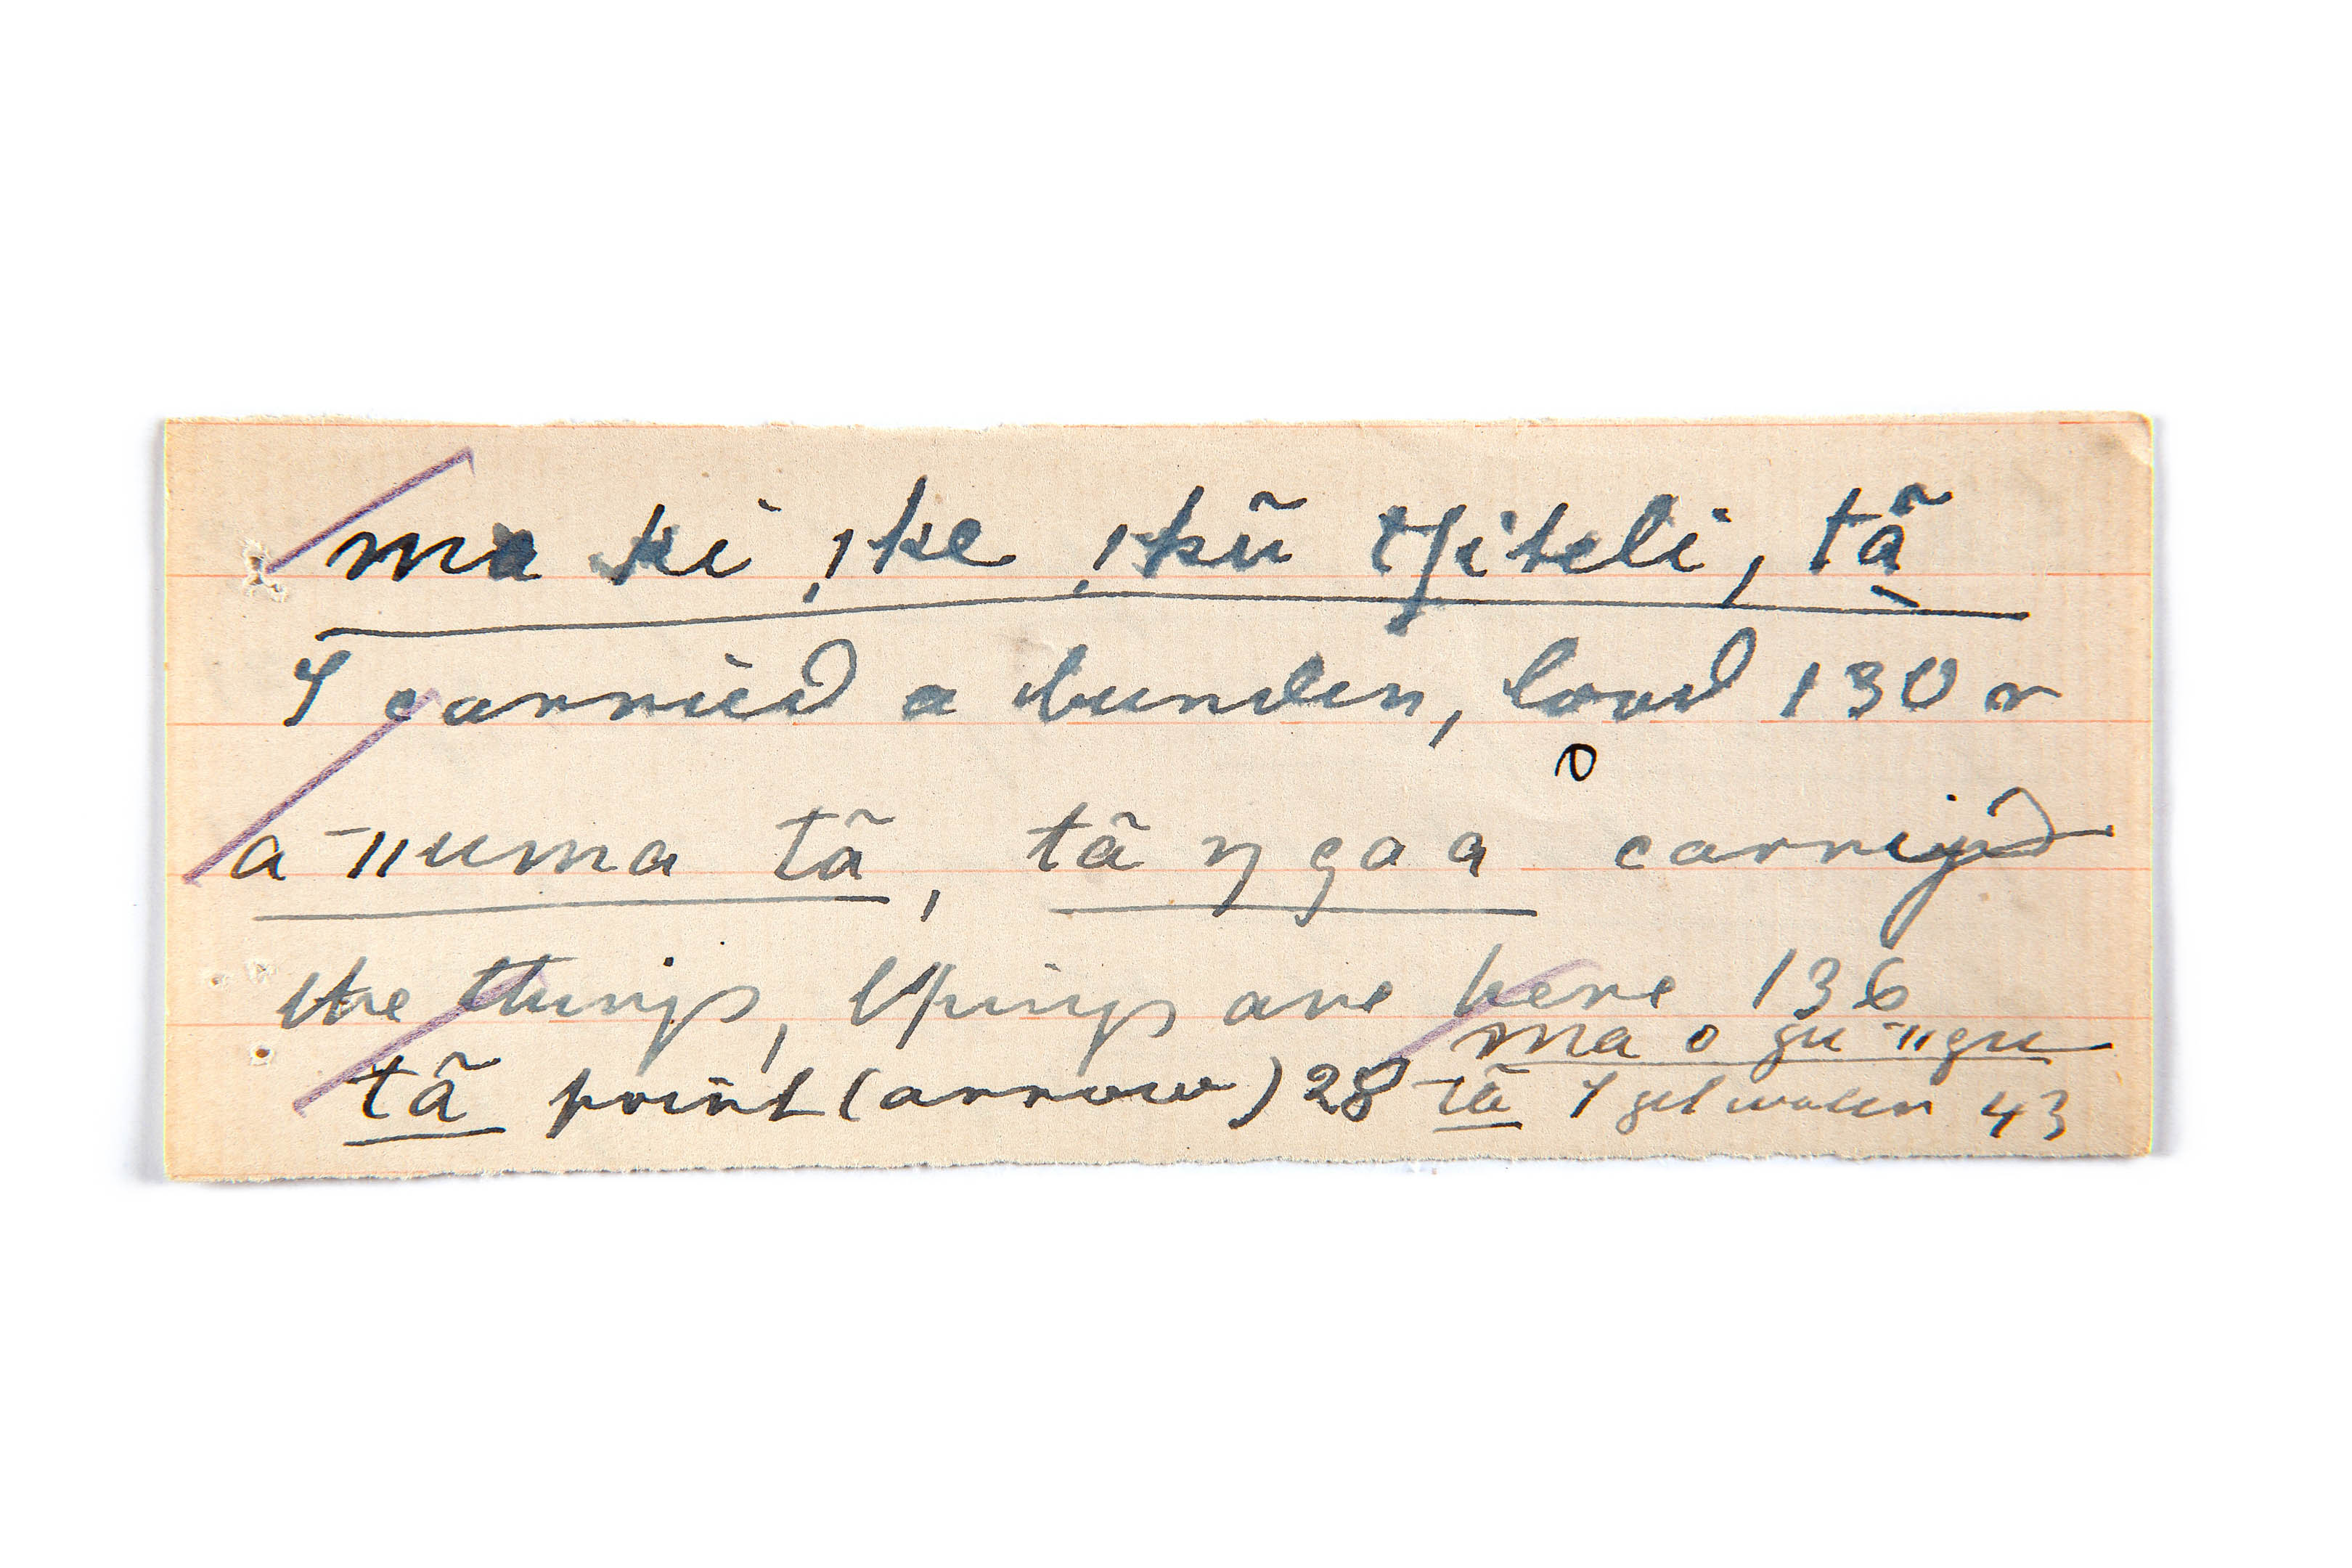 ma ki ˌıke ˌıkũ tʃiteli, tã
I carried a burden, load 130 r
o
a ‾ıı uma tã, tã ŋ gaa carryd
the things, things are here 136
ma o gu ‾ıı gu
tã point (arrow) 28 tã I get water 43